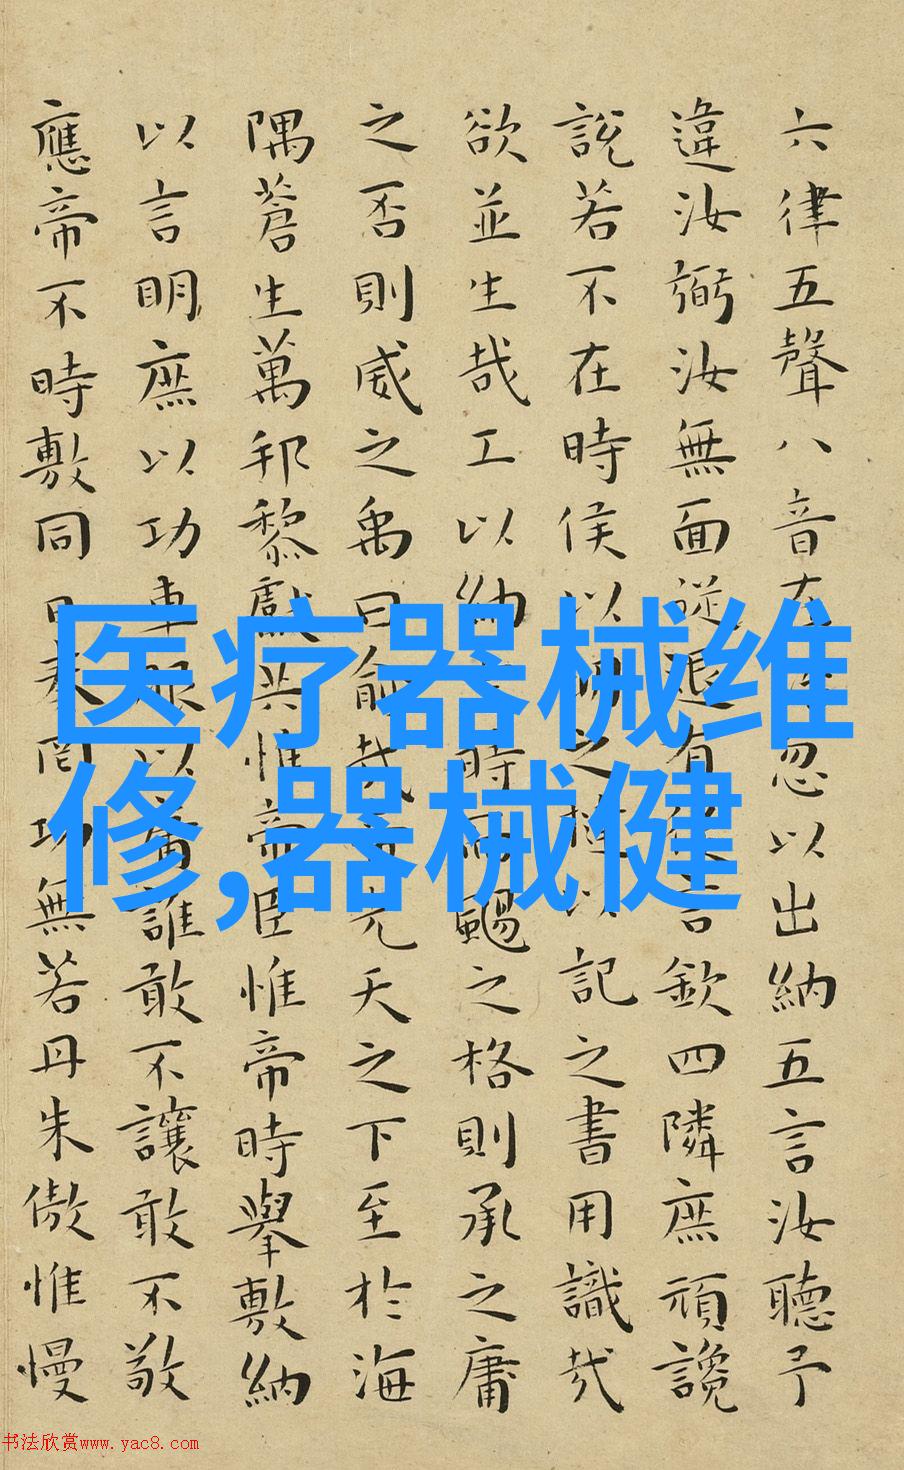 六律五聲八音在忽以出納五言汝聽予
違汝弼汝無面從退有言欽四隣庶頑讒
說若不在時侯以明之撻以記之書用識哉
欲並生哉工以納時而颺之格則承之庸
之否則威之禹曰俞哉帝光天之下至於海
隅蒼生萬邦黎獻共惟帝臣惟帝時舉敷納
以言明庶以功車服以庸誰敢不讓敢不敬
應帝不時敷同日奏罔功無若丹朱傲惟慢
医疗器械维
修,器械健
书法欣赏www.yac8.com